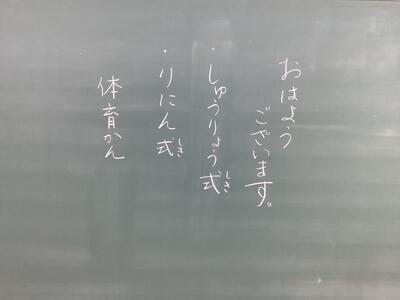 おはよう
ございます。
・しゅうりょう式しき
・りにん式しき
体育かん